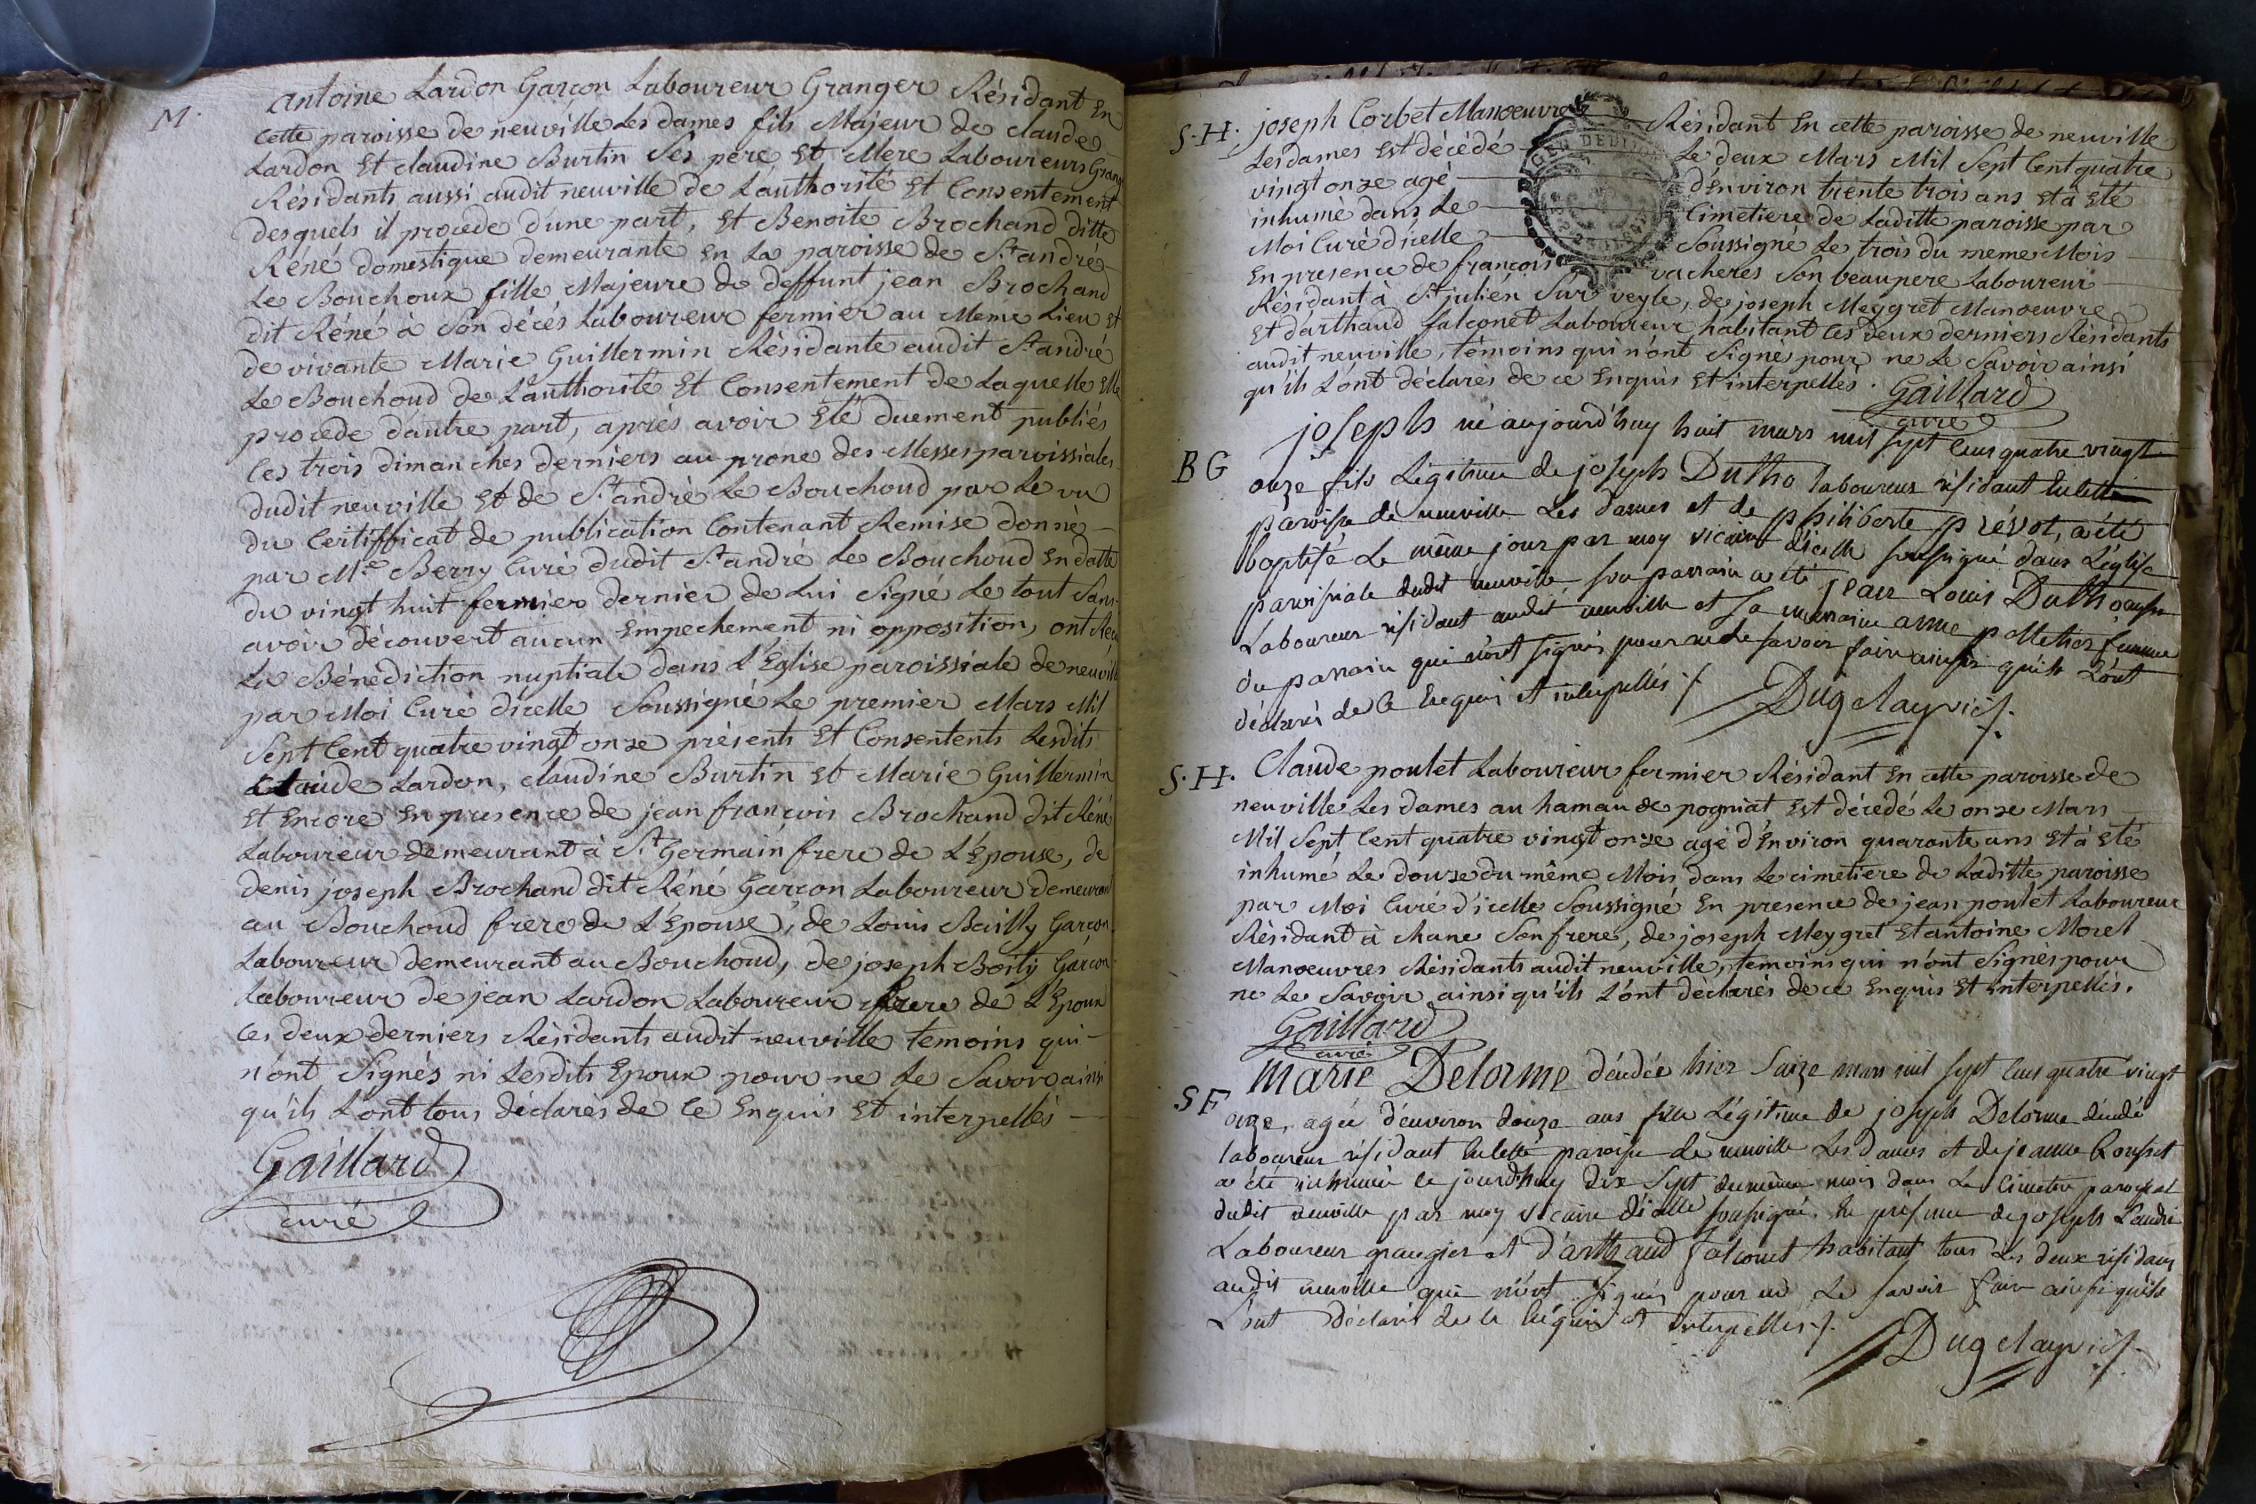 M.
antoine Lardon Garçon Laboureur Granger Résidant En
cette paroisse de neuville Les dames fils Majeur de claude
Lardon Et claudine Burtin Ses pere Et Mere Laboureurs Grang
Résidants aussi audit neuville de L'authorité Et Consentement
desquels il procede d'une part, Et Benoite Brochand ditte
Réné domestique demeurante En La paroisse de St andré
Le Bouchoux fille Majeure de deffunt jean Brochand
dit Réné à Son décés Laboureur fermier au Même Lieu Et
de vivante Marie Guillermin Résidante audit St andré
Le Bouchoud de L'authorité Et Consentement de Laquelle Elle
procede d'autre part, aprés avoir Eté duement publiés
Ces trois dimanches derniers au prone des Messes paroissiales
dudit neuville Et de St andré Le Bouchoud par Le vu
du Certifficat de publication Contenant Remise donné
par Mre Berry Curé dudit St andré Le Bouchoud En datte
du vingt huit fevrier dernier de Lui Signé Le tout Sans
avoir découvert aucun Empechement ni opposition, ont Recu
La Bénédiction nuptiale dans L'Eglise paroissiale de neuville
par Moi Curé d'icelle Soussigné Le premier Mars Mil
Sept Cent quatre vingt onze présents Et Consentents Lesdits
Claude Lardon, claudine Burtin Et Marie Guillermin
Et Encore En presence de jean françois Brochand dit Réné
Laboureur demeurant à St Germain frere de L'Epouse, de
denis joseph Brochand dit Réné Garçon Laboureur demeurant
au Bouchoud frere de L'Epouse, de Louis Bailly Garçon
Laboureur demeurant au Bouchoud, de joseph Boity Garçon
Laboureur de jean Lardon Laboureur frere de L'Epoux
Ces deux derniers Résidants audit neuville temoins qui
n'ont Signés ni Lesdits Epoux pour ne Le Savoir ainsi
qu'ils L'ont tous déclarés de Ce Enquis Et interpellés
Gaillard
curé
S.H. joseph Corbet Manoeuvre Résidant En cette paroisse de neuville
Les dames Est décédé Le deux Mars Mil Sept Cent quatre
vingt onze agé d'Environ trente trois ans Et à Eté
inhumé dans Le Cimetiere de Laditte paroisse par
Moi Curé d'icelle Soussigné Le trois du meme Mois
En presence de françois vacheres Son beaupere Laboureur
Résidant à St julien Sur veyle, de joseph Meygret Manoeuvre
Et d'arthaud falconet Laboureur habitant Ces deux derniers Résidants
audit neuville, témoins qui n'ont Signés pour ne Le Savoir ainsi
qu'ils L'ont déclarés de ce Enquis Et interpellés.
Gaillard
curé
BG
joseph né aujourd'huy huit mars mil sept cens quatre vingt
onze fils Légitime de joseph Dutho laboureur résidant en cette
paroisse de neuville Les dames et de philiberte prévot, a été
baptisé Le même jour par moy vicaire d'icelle soussigné dans L'église
paroissiale dudit neuville son parrain a été jean Louis Dutho
Laboureur résidant audit neuville et Sa marraine anne femme
du parrain qui n'ont signés pour ne le savoir faire ainsi qu'ils L'ont
déclarés de Ce Enquis et interpellés ./.
Dugelay vic.
S.H. Claude poulet Laboureur fermier Résidant En cette paroisse de
neuville Les dames au hamau de pogniat Est décédé Le onze Mars
Mil Sept Cent quatre vingt onze agé d'Environ quarante ans Et à Eté
inhumé Le douze du même Mois dans Le cimetiere de Laditte paroisse
par Moi Curé d'icelle Soussigné En presence de jean poulet Laboureur
Résidant à chane Son frere, de joseph Meygret Et antoine Morel
Manoeuvres Résidants audit neuville, temoins qui n'ont Signés pour
ne Le Savoir ainsi qu'ils L'ont déclarés de ce Enquis Et interpellés.
Gaillard
curé
SF
Marie Delorme décédée hier Saize mars mil sept cens quatre vingt
onze, agée d'environ douze ans fille Légitime de joseph Delorme décédé
laboureur résidant en cette paroisse de neuville Les dames et de jeanne Rousset
a été inhumée ce jourd'huy dix Sept du même mois dans Le Cimetier paroissial
dudit neuville par moy vicaire d'icelle soussigné. En présence de joseph
Laboureur grangier et d'arthaud falconet habitant tous Les deux résidans
audit neuville qui n'ont signés pour ne Le savoir faire ainsi qu'ils
L'ont déclaré de Ce Enquis et interpellés ./.
Dugelay vic.